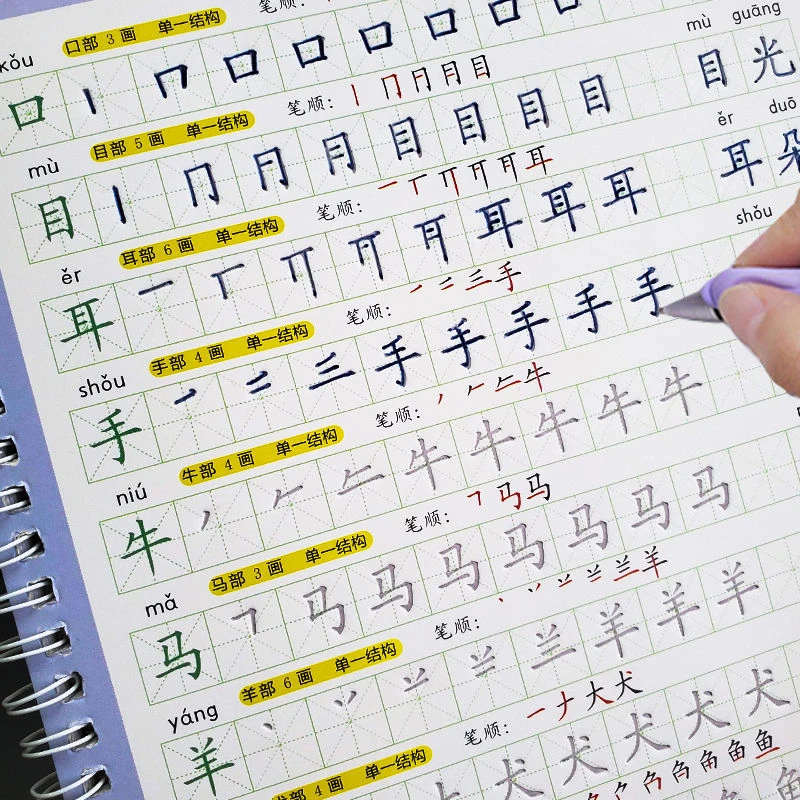 kǒu 口部 3 画 单一结构 笔顺:
口 丨 𠃍 口 口 口 口 口 口
mù 目部 5 画 单一结构 笔顺: 丨 冂 月 月 目 mù guāng
目 丨 冂 月 月 目 目 目 目 目 光
ěr 耳部 6 画 单一结构 笔顺: 一 丅 丌 耳 ěr duō
耳 一 丅 丌 耳 耳 耳 耳 朵
shǒu 手部 4 画 单一结构 笔顺: 一 二 三 手 shǒu
手 一 二 三 手 手 手 手 手
niú 牛部 4 画 单一结构 笔顺: 丿 𠂉 牛
牛 丿 𠂉 牛 牛 牛 牛 牛
mǎ 马部 3 画 单一结构 笔顺: ㇕ 马 马
马 ㇕ 马 马 马 马 马 马 马
yáng 羊部 6 画 单一结构 笔顺: 丶 丷 兰 羊
羊 丶 丷 兰 羊 羊 羊
犬部 4 画 单一结构 笔顺: 一 ナ 大 犬
犬 犬 犬 犬 犬
角 鱼 鱼